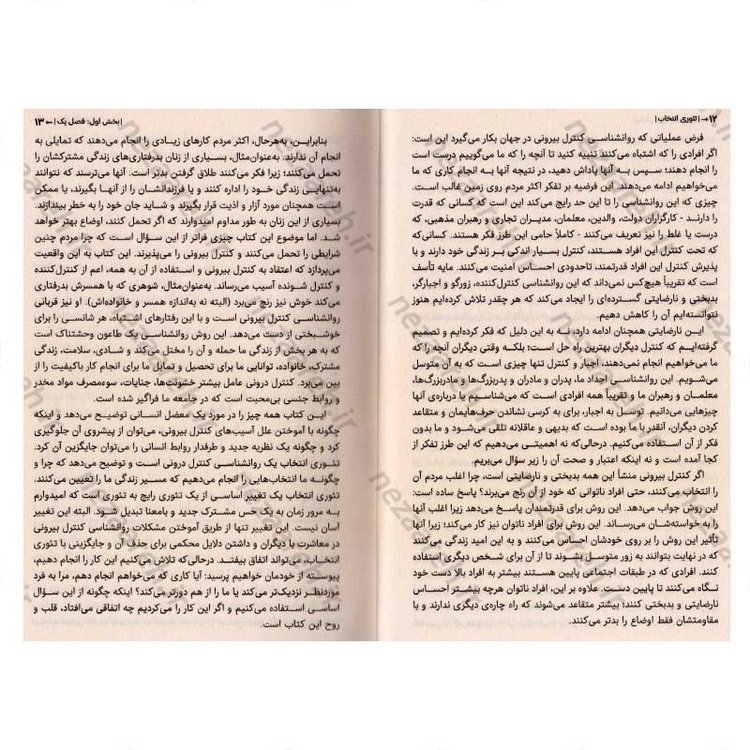 ۱۲ ← | تئوری انتخاب |
فرض عملیاتی که روانشناسی کنترل بیرونی در جهان بکار می‌گیرد این است:
اگر افرادی را که اشتباه می‌کنند تنبیه کنید تا آنچه را که ما می‌گوییم درست است
را انجام دهند؛ سپس به آنها پاداش دهید، در نتیجه آنها به آنچه که ما
می‌خواهیم ادامه می‌دهند. این فرضیه بر تفکر اکثر مردم روی زمین غالب است.
چیزی که این روانشناسی را تا این حد رایج می‌کند این است که کسانی که قدرت
را دارند - کارگزاران دولت، والدین، معلمان، مدیران تجاری و رهبران مذهبی، که
درست یا غلط را نیز تعریف می‌کنند - کاملاً حامی این طرز فکر هستند. کسانی‌که
تحت کنترل این افراد هستند، کنترل بسیار اندکی بر زندگی خود دارند و با
پذیرش کنترل این افراد قدرتمند، تاحدودی احساس امنیت می‌کنند. مایه تأسف
است که تقریباً هیچ‌کس نمی‌داند که این روانشناسی کنترل‌کننده، زورگو و اجبارگر،
بدبختی و نارضایتی گسترده‌ای را ایجاد می‌کند که هر چقدر تلاش کرده‌ایم هنوز
نتوانسته‌ایم آن را کاهش دهیم.
این نارضایتی همچنان ادامه دارد، نه به این دلیل که فکر کرده‌ایم و تصمیم
گرفته‌ایم که کنترل دیگران بهترین راه حل است؛ بلکه وقتی دیگران آنچه را که
ما می‌خواهیم انجام نمی‌دهند، اجبار و کنترل تنها چیزی است که به آن متوسل
می‌شویم. این روانشناسی اجداد ما، پدران و مادران و پدربزرگ‌ها و مادربزرگ‌ها،
معلمان و رهبران ما و تقریباً همه افرادی است که می‌شناسیم یا درباره‌ی آنها
چیزهایی می‌دانیم. توسل به اجبار، برای به کرسی نشاندن حرف‌هایمان و متقاعد
کردن دیگران، آنقدر با ما بوده است که بدیهی و عاقلانه تلقی می‌شود و ما بدون
فکر از آن استفاده می‌کنیم. درحالی‌که نه اهمیتی می‌دهیم که این طرز تفکر از
کجا آمده است و نه اینکه اعتبار و صحت آن را زیر سؤال می‌بریم.
اگر کنترل بیرونی منشأ این همه بدبختی و نارضایتی است، چرا اغلب مردم آن
را انتخاب می‌کنند، حتی افراد ناتوانی که خود از آن رنج می‌برند؟ پاسخ ساده است:
این روش جواب می‌دهد. این روش برای قدرتمندان پاسخ می‌دهد زیرا اغلب آنها
را به خواسته‌شان می‌رساند. این روش برای افراد ناتوان نیز کار می‌کند؛ زیرا آنها
تأثیر این روش را بر روی خودشان احساس می‌کنند و به این امید زندگی می‌کنند
که در نهایت بتوانند به زور متوسل بشوند تا از آن برای شخص دیگری استفاده
کنند. افرادی که در طبقات اجتماعی پایین هستند بیشتر به افراد بالا دست خود
نگاه می‌کنند تا پایین دست. علاوه بر این، افراد ناتوان هرچه بیشتر احساس
نارضایتی و بدبختی کنند؛ بیشتر متقاعد می‌شوند که راه چاره‌ی دیگری ندارند و با
مقاومتشان فقط اوضاع را بدتر می‌کنند.
| بخش اول: فصل یک | ← ۱۳
بنابراین، به‌هرحال، اکثر مردم کارهای زیادی را انجام می‌دهند که تمایلی به
انجام آن ندارند. به‌عنوان‌مثال، بسیاری از زنان بدرفتاری‌های زندگی مشترکشان را
تحمل می‌کنند؛ زیرا فکر می‌کنند طلاق گرفتن بدتر است. آنها می‌ترسند که نتوانند
به‌تنهایی زندگی خود را اداره کنند و یا فرزندانشان را از آنها بگیرند، یا ممکن
است همچنان مورد آزار و اذیت قرار بگیرند و شاید جان خود را به خطر بیندازند.
بسیاری از این زنان به طور مداوم امیدوارند که اگر تحمل کنند، اوضاع بهتر خواهد
شد. اما موضوع این کتاب چیزی فراتر از این سؤال است که چرا مردم چنین
شرایطی را تحمل می‌کنند و کنترل بیرونی را می‌پذیرند. این کتاب به این واقعیت
می‌پردازد که اعتقاد به کنترل بیرونی و استفاده از آن به همه، اعم از کنترل‌کننده
و کنترل شونده آسیب می‌رساند. به‌عنوان‌مثال، شوهری که با همسرش بدرفتاری
می‌کند خوش نیز رنج می‌برد (البته نه به‌اندازه همسر و خانواده‌اش). او نیز قربانی
کنترل بیرونی است و با این رفتارهای اشتباه، هر شانسی را برای
خوشبختی از دست می‌دهد. این روش روانشناسی یک طاعون وحشتناک است
که به هر بخش از زندگی ما حمله و آن را مختل می‌کند و شادی، سلامت، زندگی
مشترک، خانواده، توانایی ما برای تحصیل و تمایل ما برای انجام کار باکیفیت را از
بین می‌برد. کنترل درونی عامل بیشتر خشونت‌ها، جنایات، سوءمصرف مواد مخدر
و روابط جنسی بی‌محبت است که در جامعه ما فراگیر شده است.
این کتاب همه چیز را در مورد یک معضل انسانی توضیح می‌دهد و اینکه
چگونه با آموختن علل آسیب‌های کنترل بیرونی، می‌توان از پیشروی آن جلوگیری
کرد و چگونه یک نظریه جدید و طرفدار روابط انسانی را می‌توان جایگزین آن کرد.
تئوری انتخاب یک روانشناسی کنترل درونی است و توضیح می‌دهد که چرا و
چگونه ما انتخاب‌هایی را انجام می‌دهیم که مسیر زندگی ما را تعیین می‌کنند.
تئوری انتخاب یک تغییر اساسی از یک تئوری رایج به تئوری است که امیدوارم
به مرور زمان به یک حس مشترک جدید و بامعنا تبدیل شود. البته این تغییر
آسان نیست. این تغییر تنها از طریق آموختن مشکلات روانشناسی کنترل بیرونی
در معاشرت با دیگران و داشتن دلایل محکمی برای حذف آن و جایگزینی با تئوری
انتخاب، می‌تواند اتفاق بیفتد. درحالی‌که تلاش می‌کنیم این کار را انجام دهیم،
پیوسته از خودمان خواهیم پرسید: آیا کاری که می‌خواهم انجام دهم، مرا به فرد
موردنظر نزدیک‌تر می‌کند یا ما را از هم دورتر می‌کند؟ اینکه چگونه از این سؤال
اساسی استفاده می‌کنیم و اگر این کار را می‌کردیم چه اتفاقی می‌افتاد، قلب و
روح این کتاب است.
nezamieh.ir